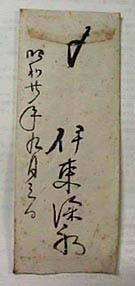 〆
伊東深水
昭和廿年九月三日